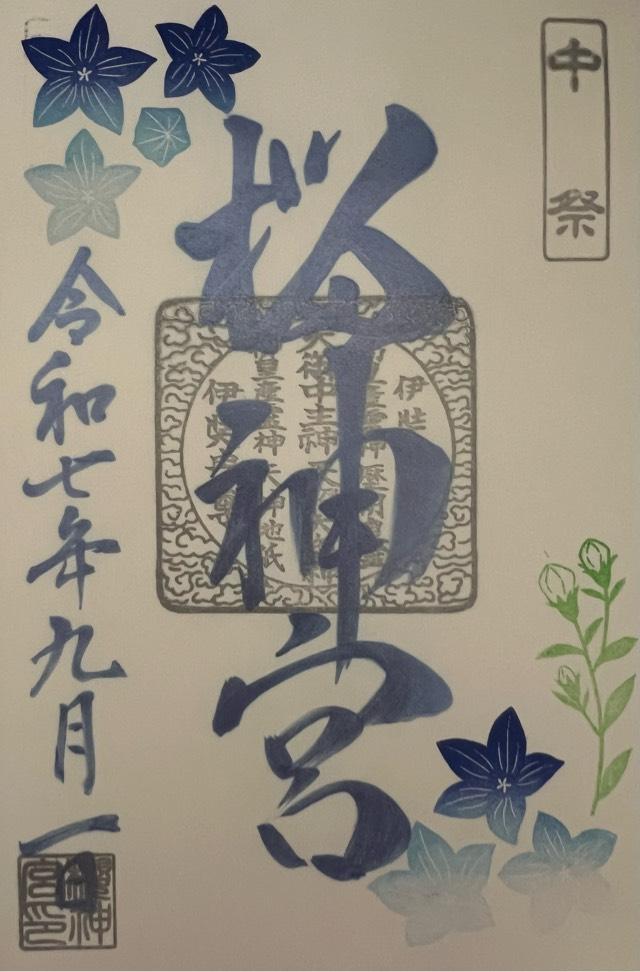 中祭
桜神宮
伊弉
天御中主神天
皇産霊神天神地祇
伊弉
令和七年九月一日